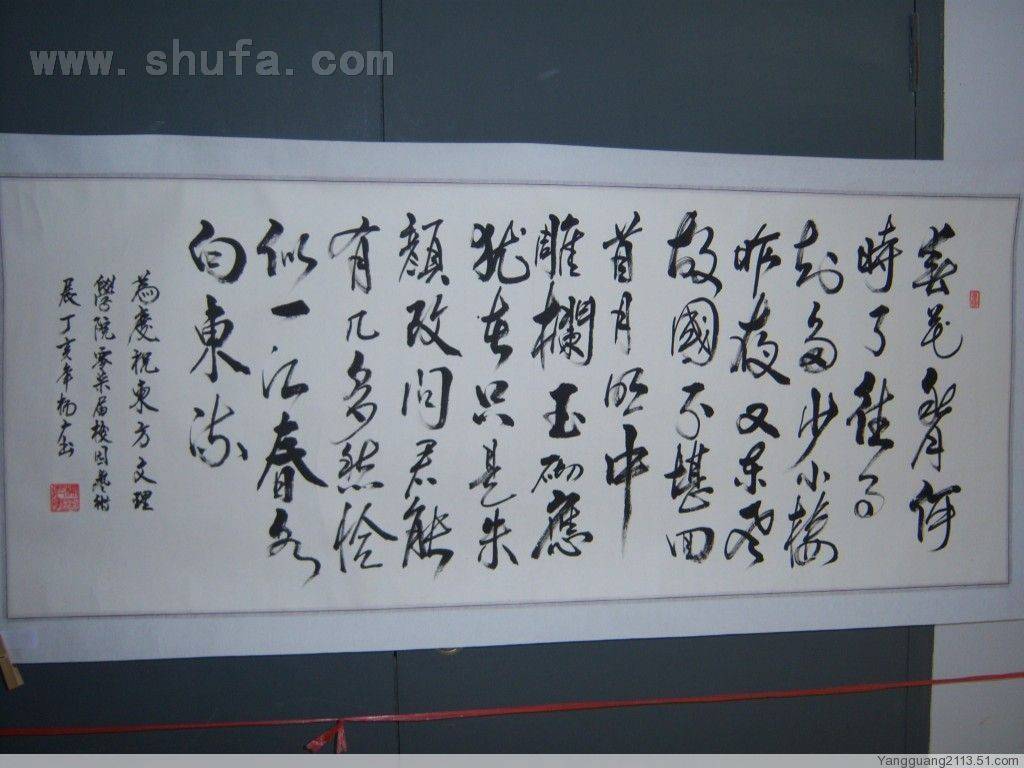 www.shufa.com
春花秋月何
時了往事
知多少小樓
昨夜又東風
故國不堪回
首月明中
雕欄玉砌應
猶在只是朱
顏改問君能
有几多愁恰
似一江春水
向東流
為慶祝東方文理
學院零柒届校园藝術
展丁亥年楊书
Yangguang2113.51.com